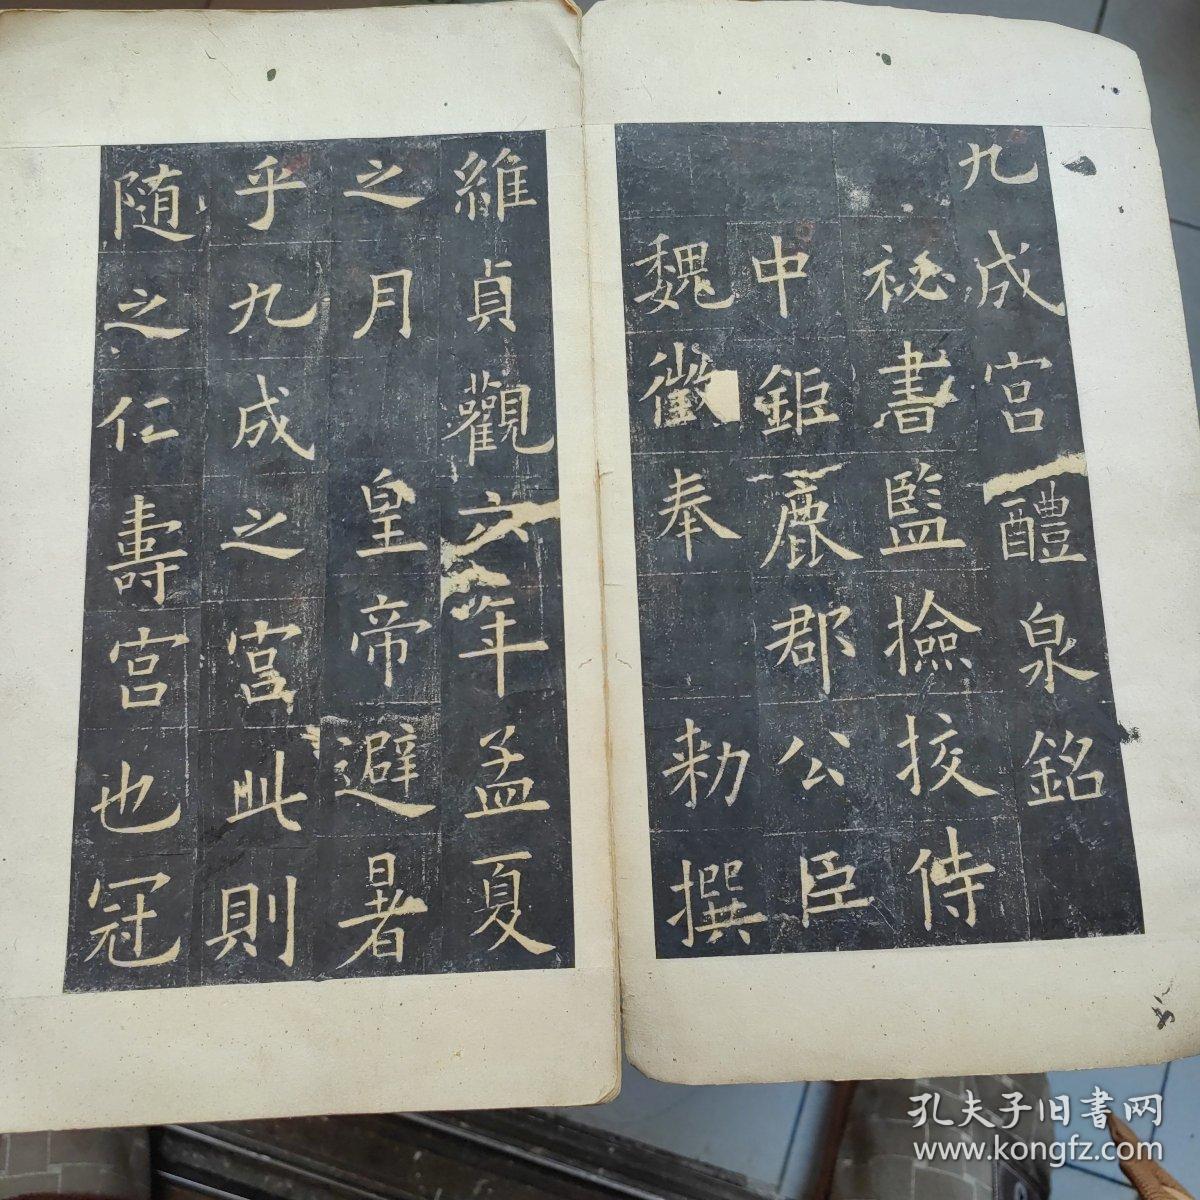 九成宮醴泉銘
祕書監撿挍侍
中鉅鹿郡公臣
魏徵奉
敕撰
維貞觀六年孟夏
之月
皇帝避暑
乎九成之宮此則
随之仁壽宮也冠
孔夫子旧书网
www.kongfz.com